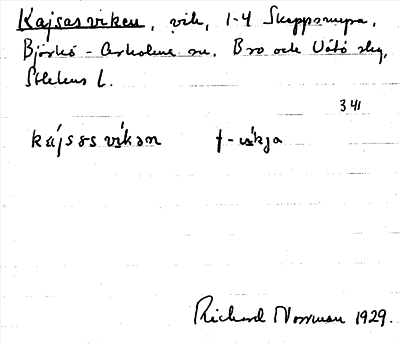 Kajsasviken, vik, 1-4 Skeppsmyra,
Björkö-Arholma sn. Bro och Vätö skg,
Sthlms l.
341
kájsasvíkən
Richard Norrman 1929.